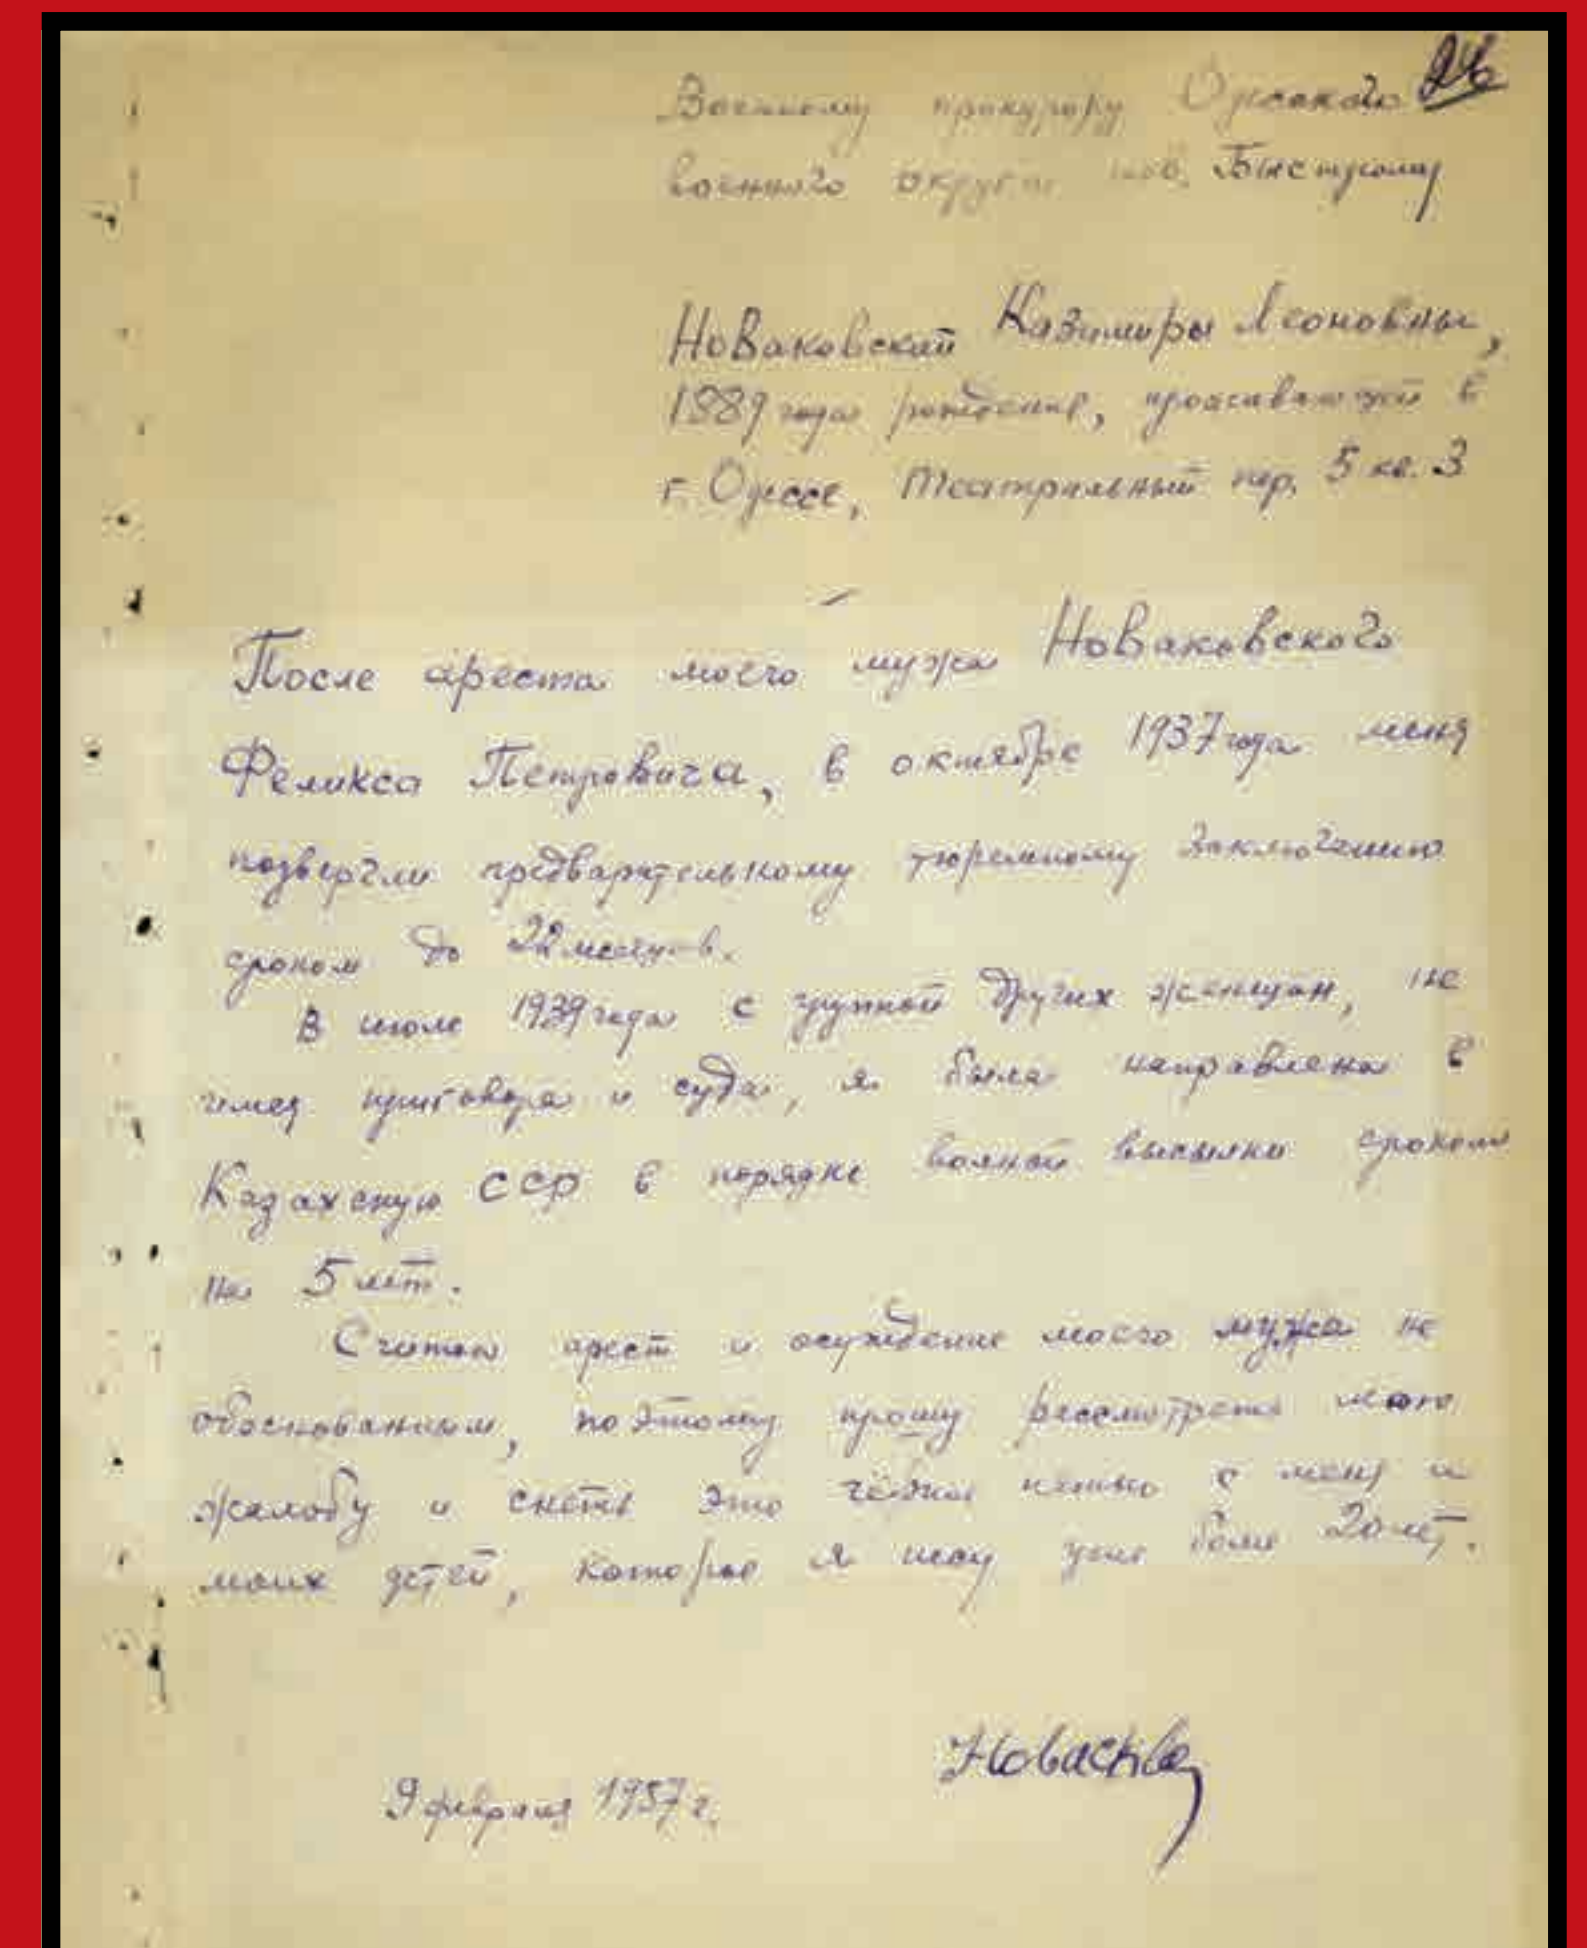 24
Военному прокурору Одесского
военного округа тов.
Новаковской Казимиры Леоновны,
1889 года рождения, проживающей в
г. Одессе, Театральный пер. 5 кв. 3
После ареста моего мужа Новаковского
Феликса Петровича, в октябре 1937 года меня
подвергли предварительному тюремному заключению
сроком до 22 месяцев.
В июле 1939 года с группой других женщин, не
имея приговора и суда, я была направлена в
Казахскую ССР в порядке вольной высылки сроком
на 5 лет.
Считаю арест и осуждение моего мужа не
обоснованным, поэтому прошу рассмотреть мою
жалобу и снять это пятно с меня и
моих детей, которое я несу уже более 20 лет.
9 февраля 1957 г.